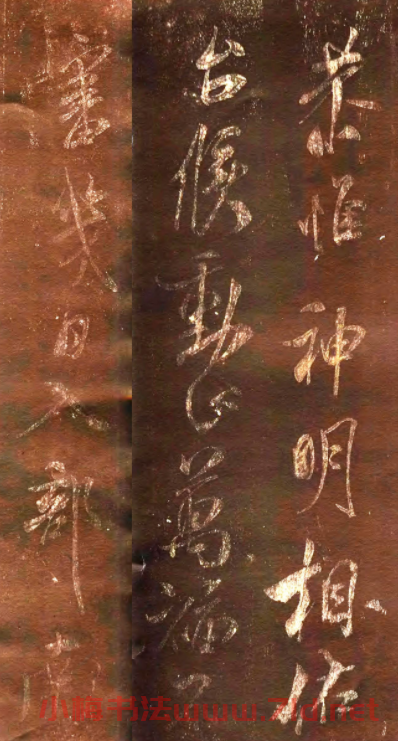 恭惟神明相佑
台候動止萬福
審幾日入部
小楷书法www.7ld.net